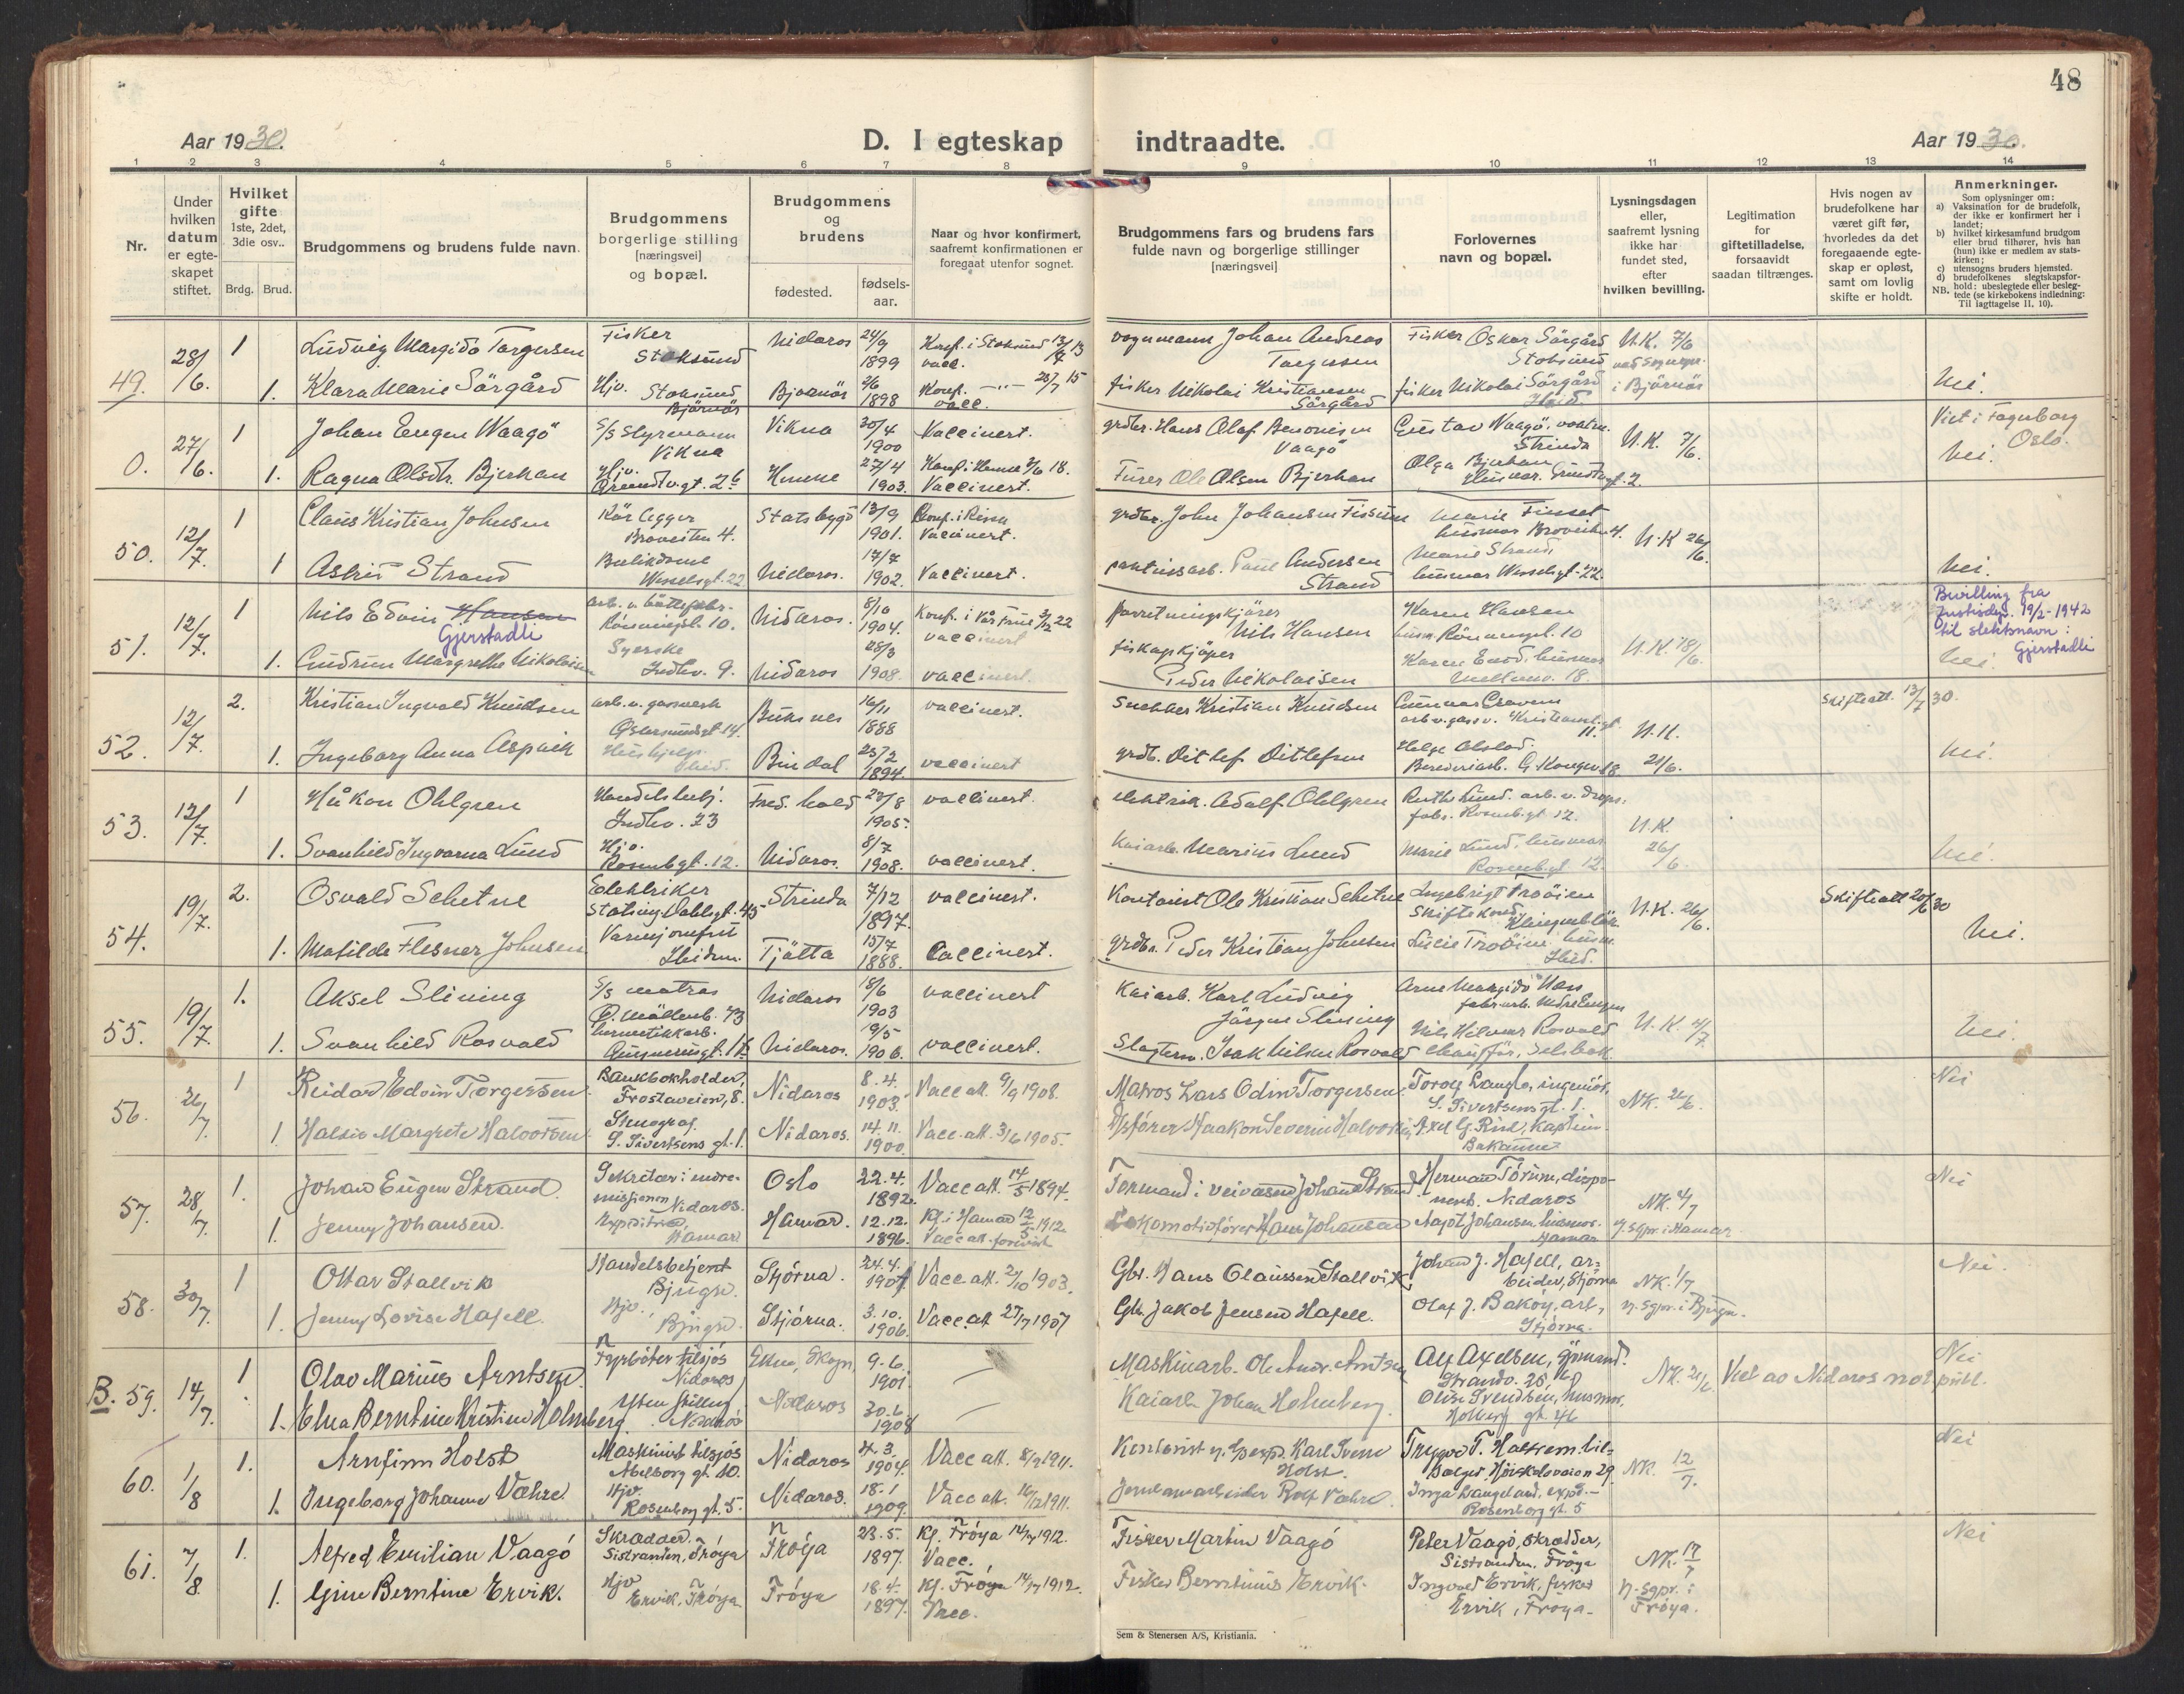 48
Aar 1930.
D. I egteskap indtraadte.
Aar 1930.
1 2 3 4 5 6 7 8 9 10 11 12 13 14
Nr.
Under hvilken datum er egte-skapet stiftet.
Hvilket gifte 1ste, 2det, 3die osv..
Brdg. Brud.
Brudgommens og brudens fulde navn.
Brudgommens borgerlige stilling [næringsvei] og bopæl.
Brudgommens og brudens
fødested.
fødsels-aar.
Naar og hvor konfirmert, saafremt konfirmationen er foregaat utenfor sognet.
Brudgommens fars og brudens fars fulde navn og borgerlige stillinger [næringsvei]
Forlovernes navn og bopæl.
Lysningsdagen eller, saafremt lysning ikke har fundet sted, efter hvilken bevilling.
Legitimation for giftetilladelse, forsaavidt saadan tiltrænges.
Hvis nogen av brudefolkene har været gift før, hvorledes da det foregaaende egte-skap er opløst, samt om lovlig skifte er holdt.
Anmerkninger.
Som oplysninger om:
a) Vaksination for de brudefolk, der ikke er konfirmert her i landet;
b) hvilket kirkesamfund brudgom eller brud tilhører, hvis han (hun) ikke er medlem av stats-kirken;
c) utensogns bruders hjemsted.
d) brudefolkenes slegtskapsfor-hold: ubeslegtede eller besleg-tede (se kirkebokens indledning: Til iagttagelse II, 10).
NB.
49. 28/6. 1 Ludvig Margido Torgersen Fisker Stoksund Nidaros 24/9 1899 Konf. i Stoksund 13/7 13 vacc. Johan Andreas Torgersen Fisker Oskar Sörgård Stoksund N.K. 7/6
1. Klara Marie Sörgård Hjv. Stoksund Bjørnör Bjørnör 1898 Konf. —"— 15 vacc. fisker Nikolai Kristiansen Sörgård fisker Nikolai Sörgård i Bjørnör Nei.
0. 27/6. 1 Johan Eugen Waagö S/S Styrmann Vikna Vikna 30/4 1900 Vaccinert. grdbr. Hans Olaf Benonisen Vaagö Gustav Waagö, Strinda N.K. 7/6. Viet i Fagerborg Oslo.
1. Ragna Olsdtr. Bjerkan Hjv. Grundtv.gt. 26 Hemne 27/4 1903. Konf. i Hemne 18. Vaccinert. Furer Ole Olsen Bjerkan Olga Bjerkan Husmor. Nei.
50. 12/7. 1 Claus Kristian Johnsen Broveiten 4. Statsbygd 13/9 1901. Konf. i Rissa Vaccinert. grdbr. John Johansen Fissum Marie Finset husmor Broveiten 4. N.K. 26/6.
1 Astrid Strand Butikdame Wesselsgt. 22 Nidaros. 17/7 1902. Vaccinert. Paul Andersen Strand Marie Strand, husmor Wesselsgt. 22. Nei.
51. 12/7. 1 Nils Edvin Hansen Gjerstadli Rönningsl. 10. Nidaros. 8/10 1904. Konf. i Vår Frue 22 vaccinert forretningskjörer Nils Hansen Karen Hansen husm. Rönningsl. 10 N.K. 18/6. Bevilling fra Justisdep. 19/2-1942 til slektsnavn: Gjerstadli
1. Gudrun Margrethe Nikolaisen Syerske Indhv. 9. Nidaros 28/3 1908. vaccinert. fiskopkjöper Peder Nikolaisen husmor Mellomv. 18. Nei.
52. 12/7. 2. Kristian Ingvald Knudsen arb. v. gassverk Östersundsgt 14. Buksnes 16/11 1888 vaccinert. Snekker Kristian Knudsen Gunnar Craven arb v. gassv. 11. N.K. Skifteatt. 13/7 30.
1. Ingeborg Anna Aspack Hushjelp. Bindal 23/2 1894. vaccinert grdb. Ditlef Ditlefsen Helge Alstad. 18. 21/6. Nei.
53. 12/7. 1 Håkon Ohlgren Handelsbetj. Indhv. 23 Fred. hald 23/8 1905. vaccinert. elektrik. Adolf Ohlgren Ruth Lund. arb. v. drops. fabr. Rosenb.gt 12. N.K.
1. Svanhild Ingvarna Lund Hjv. Rosenb.gt. 12. Nidaros. 8/7 1908. vaccinert. Kaiarb. Marius Lund Marie Lund, husmor Rosenb.gt 12. 26/6. Nei.
54. 19/7. 2. Osvald Sehetne Elektriker Stadsing. Dahlsgt. 45 Strinda 7/12 1897. vaccinert. Kontorist Ole Kristian Sehetne Ingebrigt Trøien N.K. 26/6. Skifteatt 20/6 30
1. Matilde Flesner Johnsen Varmejomfru Tjötta 15/7 1888. Vaccinert. grdbr. Peder Kristian Johnsen Lucie Trøien husm. Nei.
55. 19/7. 1. Aksel Slining S/S matros Ö. Möllenb. 73 Nidaros 18/6 1903 vaccinert Kaiarb. Karl Ludvig Jörgen Slining Arne Margido Moen fabr.arb. N.K. 4/7.
1. Svanhild Rosvald hermetikkarb. Gunnerusgt. 1 Nidaros. 19/5 1906. vaccinert. Isak Nilsen Rosvald Nils Hilmar Rosvald Chauffør, Selsbak. Nei.
56. 26/7. 1 Reidar Edvin Torgersen. Bankbokholder, Frostaveien, 8. Nidaros 8.4. 1903. Vacc att. 9/9 1908. Matros Lars Odin Torgersen Torolf Langlo, ingeniör, S. Sivertsens gt. 1. NK. 26/6. Nei
1. Haldis Margrete Halvorsen. Stenograf. S. Sivertsens gt. 1. Nidaros. 14.11. 1900. Vacc. att. 3/6 1905. Haakon Severin Halvorsen Axel G. Rise, kaptein. Bakaunet
57. 28/7. 1. Johan Eugen Strand. Sekretær i indre-missionen Nidaros. Oslo 22.4. 1892. Vacc att. 14/5 1894. Formand i veivæsen Johan Strand. Herman Tørum, dispo-nent. Nidaros NK. 4/7 Nei
1. Jenny Johansen. Hamar Hamar. 12.12. 1896. Kf. i Hamar 12/5 1912. Vacc att. forevist Lokomotivfører Hans Johansen Aagot Johansen husmor. Hamar v. sgpr. i Hamar
58. 30/7. 1 Ottar Stallvik Handelsbetjent Bjugn. Stjórna. 24.4. 1901 Vacc att. 2/10 1903. Gbr. Hans Olaussen Stallvik. Johan J. Hafell, ar-beider, Stjórna NK. 1/7 Nei.
1. Jenny Lovise Hafell. Hjv. Bjugn. Stjórna. 3.10. 1906. Vacc.att 27/7 1907 Gbr. Jakob Jensen Hafell. Olaf J. Bakóy, arb, Stjórna. v. sgpr. i Bjugn.
B. 59. 14/7. 1 Olav Marius Arntsen. Fyrbóter tilsjós Nidaros Ekne, Skogn 9.6. 1901. — Maskinarb. Ole Andr. Arntsen Alf Axelsen, formand. Strandv. 26. NK. 21/6. Viet av Nidaros not. publ. Nei
1. Elna Berntine Kristine Holmberg Uten stilling. Nidaros Nidaros 30.6. 1908 — Kaiarb Johan Holmberg. Olise Svendsen, husmor, Holberg gt.
60. 1/8 1. Arnfinn Holst Maskinist tilsjós Abelborg gt. 10. Nidaros 4.3. 1904. Vacc att. 1911. Kontorist Karl Holst. Trygve T. Haltrem, NK. 12/7. Nei
1. Ingeborg Johanne Væhre. Hjv. Rosenborg gt. 5. Nidaros. 18.1 1909. Vacc att. 1911. Jernbanearbeider Rolf Væhre. Inga Langeland, exped. – Rosenborg gt. 5
61. 7/8 1. Alfred Emilian Vaagó Skrædder. Sistranden, Fróya Fróya 23.5. 1897. Kf. Fróya 1912. Vacc. Fisker Martin Vaagó Peter Vaagó, skrædder, Sistranden, Fróya NK. 17/7 Nei
1. Gine Berntine Ervik. Hjv Ervik, Fróya Fróya 18.4. 1897. Kf. Fróya 1912. Vacc. Fisker Berntinus Ervik. Ingvald Ervik, fisker Ervik, Fróya. v. sgpr. i Fróya.
Sem & Stenersen A/S, Kristiania.